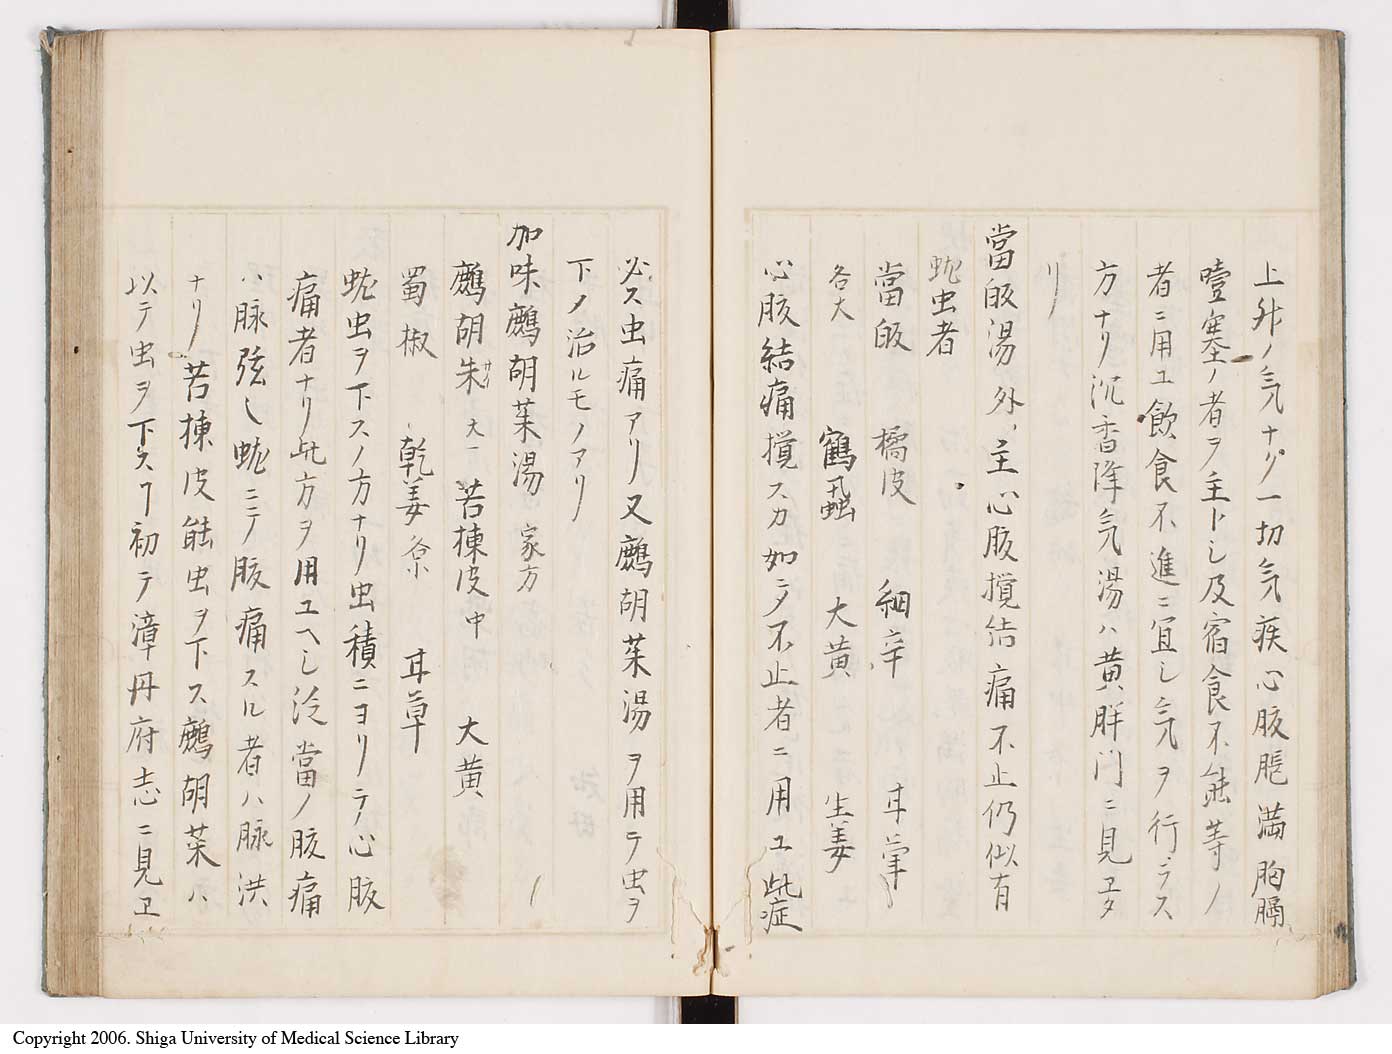 上升ノ気ナリ一切気疾心腹脹満胸膈
噎塞ノ者ヲ主トシ及宿食不能等ノ
者ニ用ユ飲食不進ニ宜シ気ヲ行ラス
方ナリ沉香降气湯ハ黄胖门ニ見ヱタ
リ
當皈湯 外、主心腹攪结痛不止仍似有
蚘虫者
當皈 橘皮 細辛 甘草
各大 鶴虱 大黄 生姜
心腹結痛攪スカ如ニタ不止者ニ用ユ此症
必ス虫痛アリ又鷓胡菜湯ヲ用テ虫ヲ
下ノ治ルモノアリ
加味鷓胡菜湯 家方
鷓胡朱 大一 苦楝皮中 大黄
蜀椒 乾姜 甘草
蚘虫ヲ下スノ方ナリ虫積ニヨリテ心腹
痛者ナリ此方ヲ用ユヘシ泛當ノ腹痛
ハ脉弦シ蚘ニテ腹痛スル者ハ脉洪
ナリ苦楝皮能虫ヲ下ス鷓胡菜ハ
以テ虫ヲ下スヿ初テ漳丹府志ニ見ヱ
Copyright 2006. Shiga University of Medical Science Library